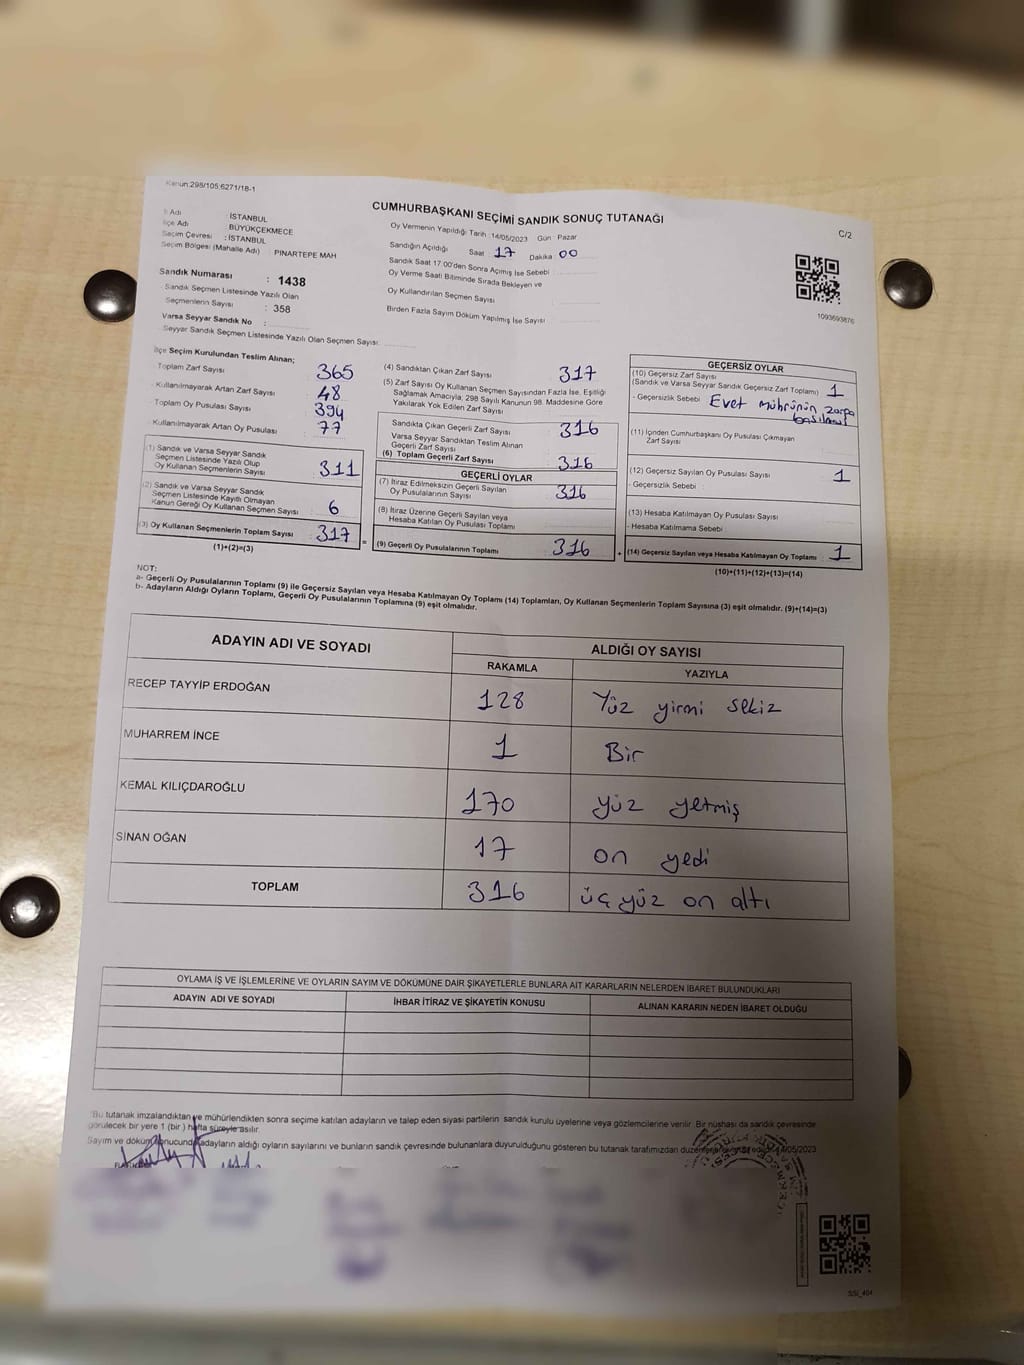 Kanun:298/105;6271/18-1
CUMHURBAŞKANI SEÇİMİ SANDIK SONUÇ TUTANAĞI
C/2
İl Adı : İSTANBUL
İlçe Adı : BÜYÜKÇEKMECE
Seçim Çevresi : İSTANBUL
Seçim Bölgesi (Mahalle Adı) PINARTEPE MAH
Sandık Numarası : 1438
Sandık Seçmen Listesinde Yazılı Olan
Seçmenlerin Sayısı : 358
Varsa Seyyar Sandık No :
Seyyar Sandık Seçmen Listesinde Yazılı Olan Seçmen Sayısı:
Oy Vermenin Yapıldığı Tarih :14/05/2023 Gün : Pazar
Sandığın Açıldığı Saat : 17 Dakika : 00
Sandık Saat 17.00'den Sonra Açmış İse Sebebi :
Oy Verme Saati Bitiminde Sırada Bekleyen ve
Oy Kullandırılan Seçmen Sayısı :
Birden Fazla Sayım Döküm Yapılmış İse Sayısı :
1093693876
İlçe Seçim Kurulundan Teslim Alınan;
Toplam Zarf Sayısı : 365
Kullanılmayarak Artan Zarf Sayısı : 48
Toplam Oy Pusulası Sayısı : 394
Kullanılmayarak Artan Oy Pusulası : 77
(1) Sandık ve Varsa Seyyar Sandık
Seçmen Listesinde Yazılı Olup
Oy Kullanan Seçmenlerin Sayısı : 311
(2) Sandık ve Varsa Seyyar Sandık
Seçmen Listesinde Kayıtlı Olmayan
Kanun Gereği Oy Kullanan Seçmen Sayısı : 6
(3) Oy Kullanan Seçmenlerin Toplam Sayısı : 317
(1)+(2)=(3)
(4) Sandıktan Çıkan Zarf Sayısı : 317
(5) Zarf Sayısı Oy Kullanan Seçmen Sayısından Fazla İse, Eşitliği
Sağlamak Amacıyla, 298 Sayılı Kanunun 98. Maddesine Göre
Yakılarak Yok Edilen Zarf Sayısı
Sandıkta Çıkan Geçerli Zarf Sayısı : 316
Varsa Seyyar Sandıktan Teslim Alınan
Geçerli Zarf Sayısı :
(6) Toplam Geçerli Zarf Sayısı : 316
GEÇERLİ OYLAR
(7) İtiraz Edilmeksizin Geçerli Sayılan
Oy Pusulalarının Sayısı : 316
(8) İtiraz Üzerine Geçerli Sayılan veya
Hesaba Katılan Oy Pusulası Toplamı :
= (9) Geçerli Oy Pusulalarının Toplamı 316
GEÇERSİZ OYLAR
(10) Geçersiz Zarf Sayısı
(Sandık ve Varsa Seyyar Sandık Geçersiz Zarf Toplamı) 1
- Geçersizlik Sebebi : Evet mührünün zarfa
basılması
(11) İçinden Cumhurbaşkanı Oy Pusulası Çıkmayan
Zarf Sayısı :
(12) Geçersiz Sayılan Oy Pusulası Sayısı : 1
- Geçersizlik Sebebi :
(13) Hesaba Katılmayan Oy Pusulası Sayısı :
- Hesaba Katılmama Sebebi :
+ (14) Geçersiz Sayılan veya Hesaba Katılmayan Oy Toplamı : 1
(10)+(11)+(12)+(13)=(14)
NOT:
a- Geçerli Oy Pusulalarının Toplamı (9) ile Geçersiz Sayılan veya Hesaba Katılmayan Oy Toplamı (14) Toplamları, Oy Kullanan Seçmenlerin Toplam Sayısına (3) eşit olmalıdır. (9)+(14)=(3)
b- Adayların Aldığı Oyların Toplamı, Geçerli Oy Pusulalarının Toplamına (9) eşit olmalıdır.
ADAYIN ADI VE SOYADI ALDIĞI OY SAYISI
RAKAMLA YAZIYLA
RECEP TAYYİP ERDOĞAN 128 Yüz yirmi sekiz
MUHARREM İNCE 1 Bir
KEMAL KILIÇDAROĞLU 170 yüz yetmiş
SİNAN OĞAN 17 on yedi
TOPLAM 316 üç yüz on altı
OYLAMA İŞ VE İŞLEMLERİNE VE OYLARIN SAYIM VE DÖKÜMÜNE DAİR ŞİKAYETLERLE BUNLARA AİT KARARLARIN NELERDEN İBARET BULUNDUKLARI
ADAYIN ADI VE SOYADI İHBAR İTİRAZ VE ŞİKAYETİN KONUSU ALINAN KARARIN NEDEN İBARET OLDUĞU
*Bu tutanak imzalandıktan ve mühürlendikten sonra seçime katılan adayların ve talep eden siyasi partilerin sandık kurulu üyelerine veya gözlemcilerine verilir. Bir nüshası da sandık çevresinde
görülecek bir yere 1 (bir ) hafta süreyle asılır.
Sayım ve döküm sonucunda adayların aldığı oyların sayılarını ve bunların sandık çevresinde bulunanlara duyurulduğunu gösteren bu tutanak tarafımızdan 14/05/2023
SSİ_404